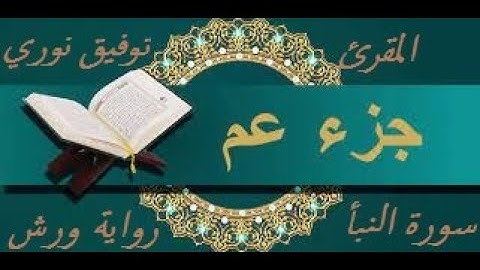 المقرئ توفيق نوري
جزء عم
سورة النبأ رواية ورش